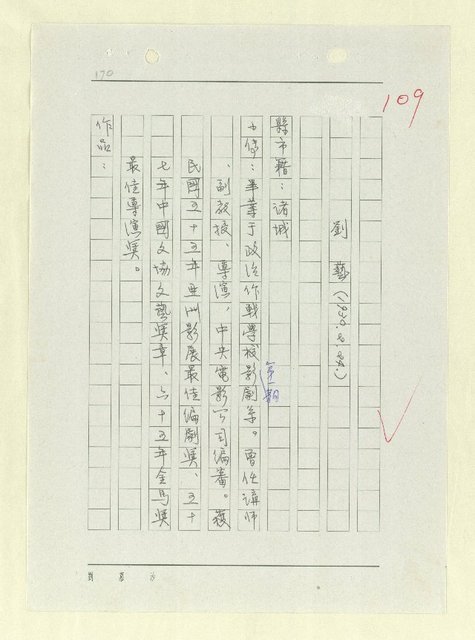 170
109
劉 藝(1930.8.8.)
縣市籍:諸城
小傳:畢業于政治作戰學校影劇系第一期。曾任講師
、副教授、導演,中央電影公司編審。獲
民國五十五年亞洲影展最佳編劇獎、五十
七年中國文協文藝獎章、六十五年金馬獎
最佳導演獎。
作品: